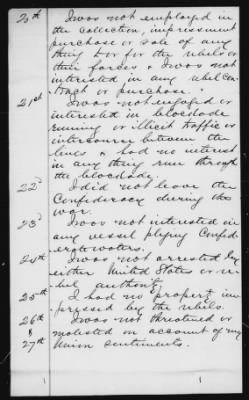 20th I was not employed in
the collection, impressment
purchase or sale of any
thing &c for the rebels or
their forces & I was not
interested in any rebel con-
tract or purchase.
21st I was not engaged or
interested in blockade
running or illicit traffic or
intercourse between the
lines & had no interest
in any thing run through
the blockade.
22d I did not leave the
Confederacy during the
war.
23d I was not interested in
any vessel plying Confed-
erate waters.
24th I was not arrested by
either United States or re-
bel authority.
25th I had no property im-
pressed by the rebels.
26th I was not threatened or
& molested on account of my
27th Union sentiments.
1 1